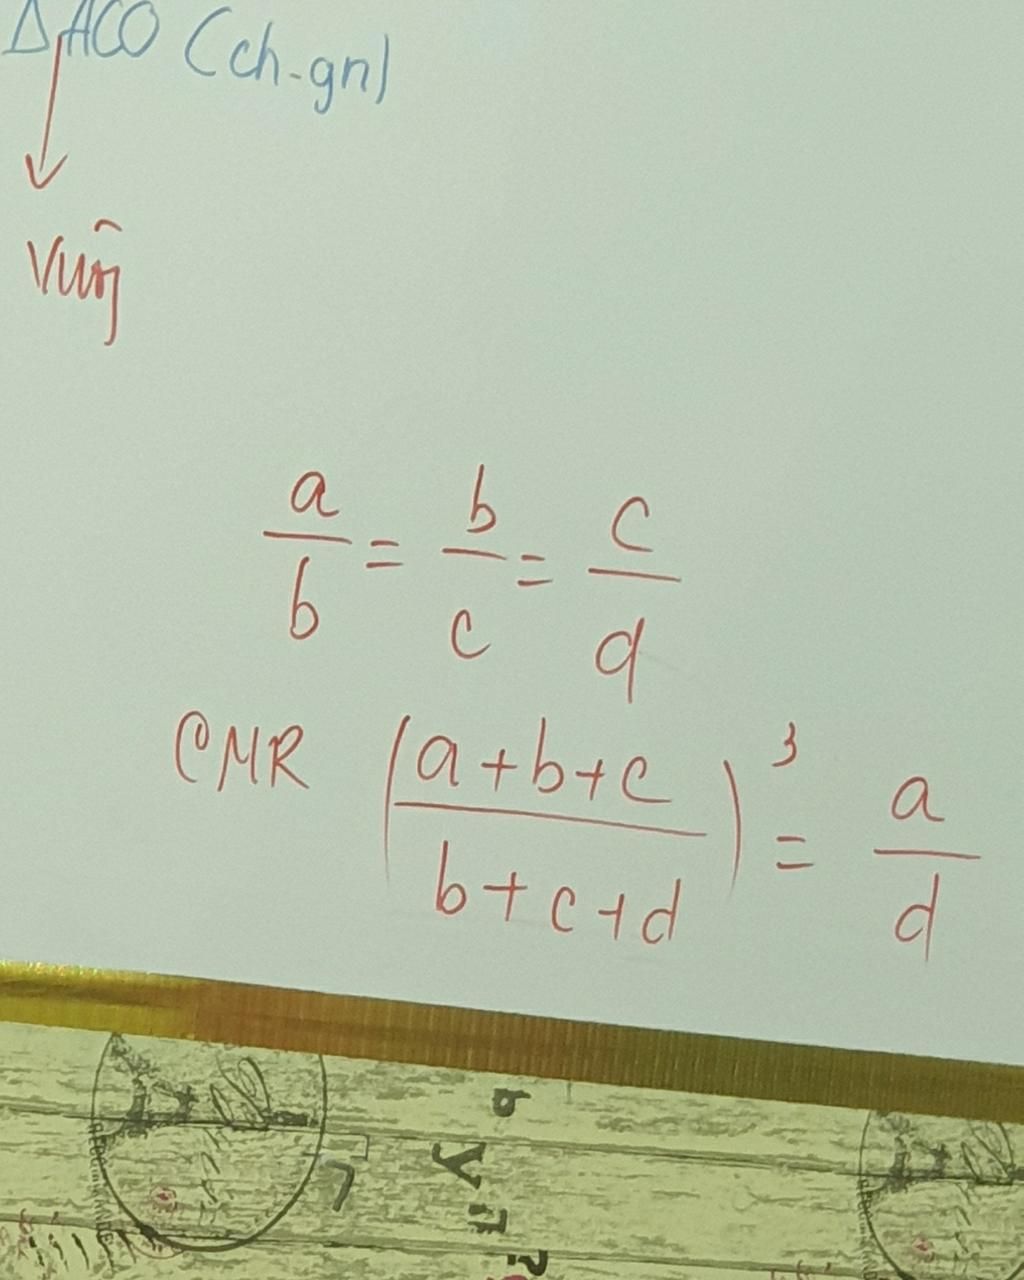 ΔACO (ch-gn)
vuông
a/b = b/c = c/d
CMR ((a+b+c)/(b+c+d))³ = a/d
b
y